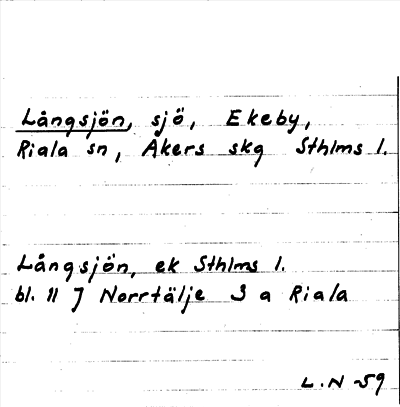 Långsjön, sjö, Ekeby,
Riala sn, Åkers skg Sthlms l.
Långsjön, ek Sthlms l.
bl. 11 J Norrtälje 3 a Riala
L.N -59